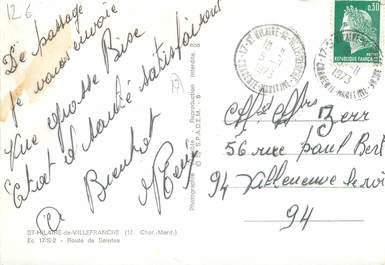 126
De passage
je vous envoie
Une grosse Bise
Etat de santé satisfaisant
A Bientôt
ST-HILAIRE-de-VILLEFRANCHE (17. Char.-Marit.)
Ec 17-S-2 - Route de Saintes
Photographie véritable - Reproduction interdite
© S.P.A.D.E.M.
17-ST HILAIRE-DE-VILLEFRANCHE
11
1973
CHARENTE-MARITIME
0,30
REPUBLIQUE FRANÇAISE
1973
CHARENTE-MARITIME
56 rue Paul Bert
94 Villeneuve le roi
94